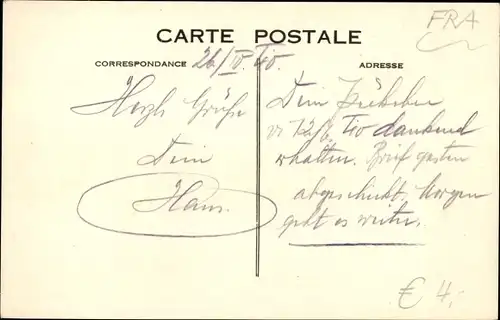 FRA
CARTE POSTALE
CORRESPONDANCE 26/IV. 40.
ADRESSE
Herzl Grüße
Dein
Hans.
Dein
dankend
erhalten. Brief gestern
abgeschickt. Morgen
geht es weiter.
€ 4,-